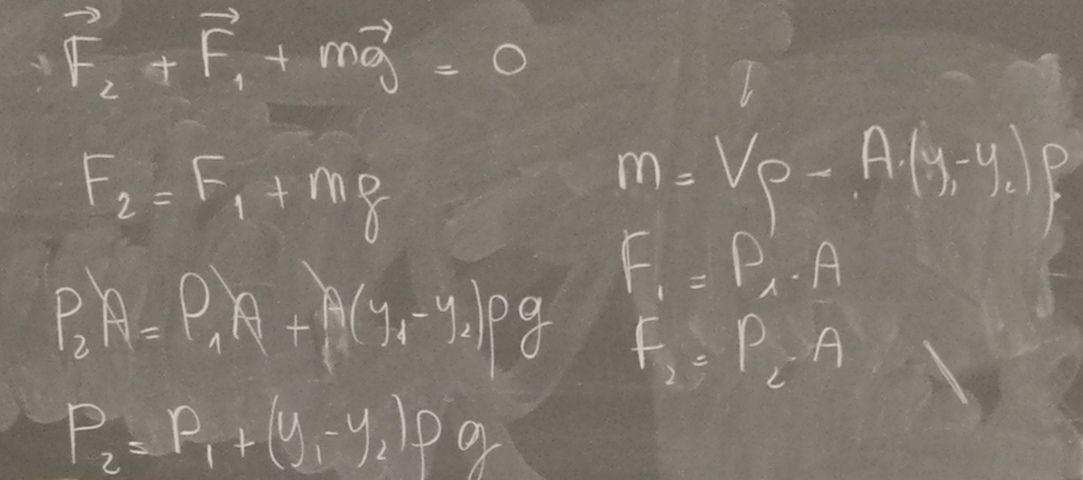 F⃗₂ + F⃗₁ + mg⃗ = 0
F₂ = F₁ + mg
P₂A = P₁A + A(y₁-y₂)ρg
P₂ = P₁ + (y₁-y₂)ρg
m = Vρ - A·(y₁-y₂)ρ
F₁ = P₁·A
F₂ = P₂·A